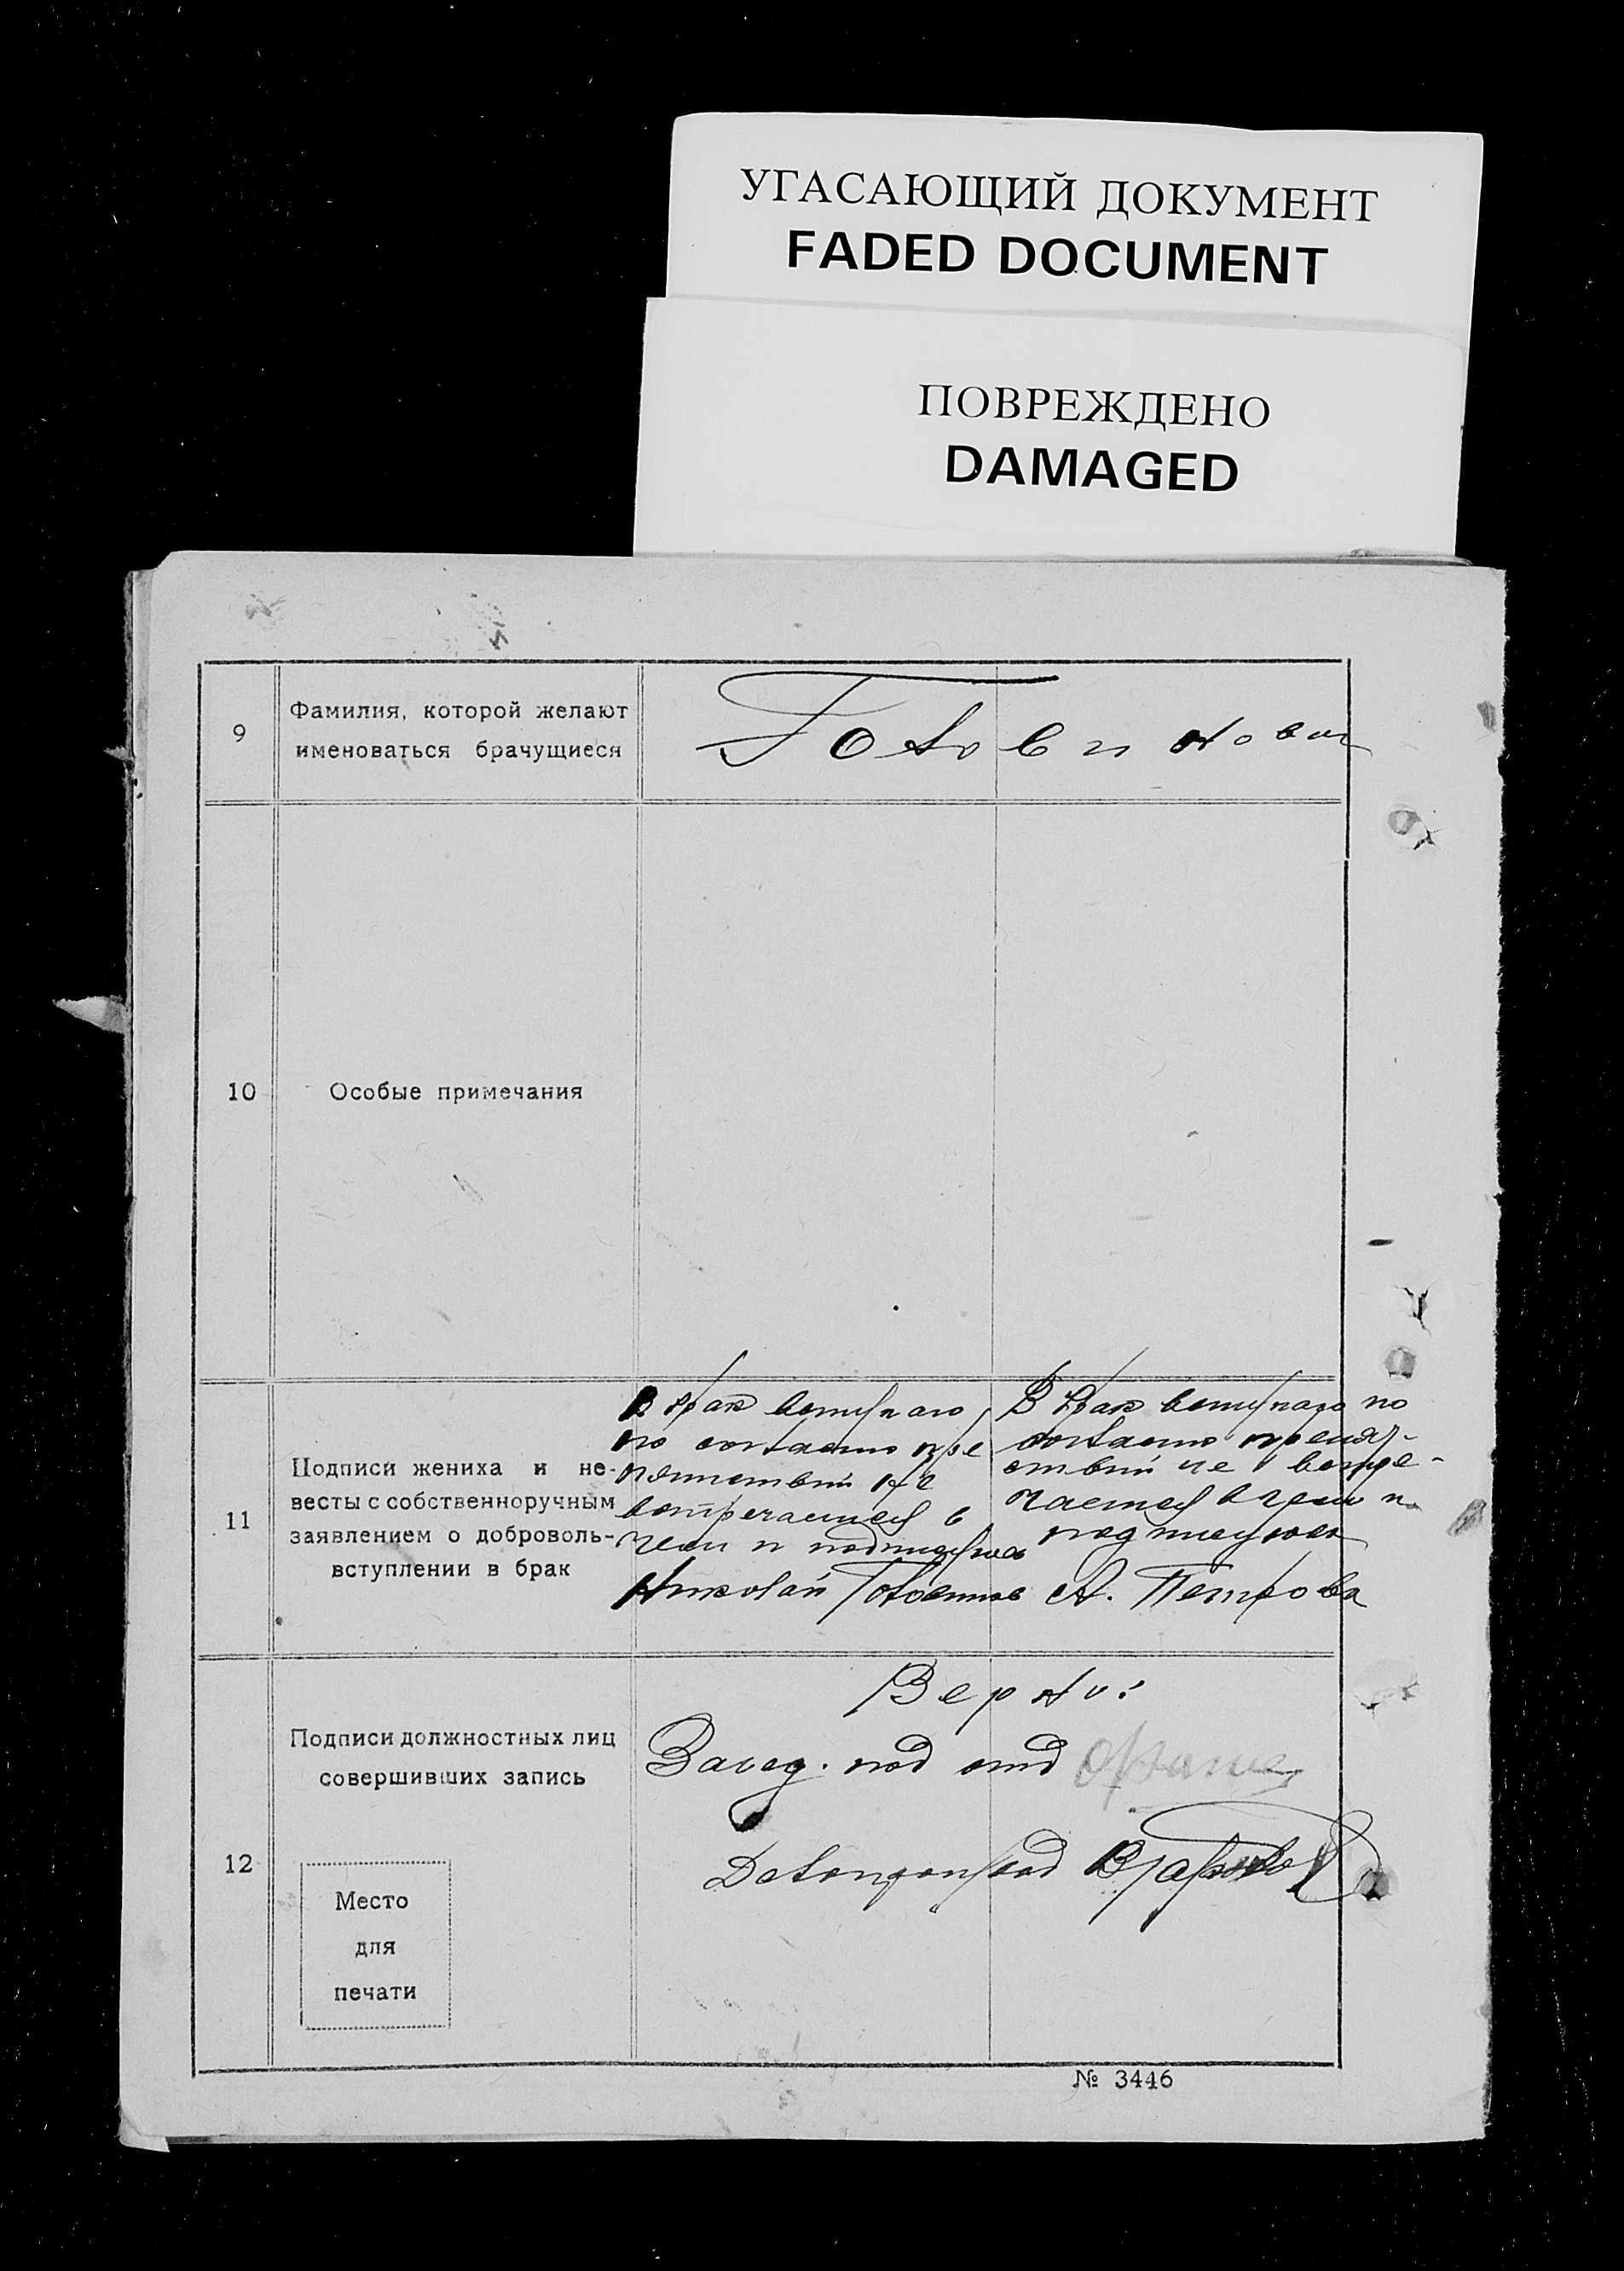 УГАСАЮЩИЙ ДОКУМЕНТ
FADED DOCUMENT
ПОВРЕЖДЕНО
DAMAGED
9
Фамилия, которой желают
именоваться брачущиеся
Головиновы
10
Особые примечания
11
Подписи жениха и не-
весты с собственноручным
заявлением о доброволь-
вступлении в брак
В брак вступаю
по согласию пре
пятствий не
встречается в
чем и подписуюсь
Николай Головинов
В брак вступаю по
согласию препят-
ствий не встре-
чается в чем и
подписуюсь
А. Петрова
12
Подписи должностных лиц
совершивших запись
Место
для
печати
Верно:
Завед. под отд
Делопроизвод
№ 3446